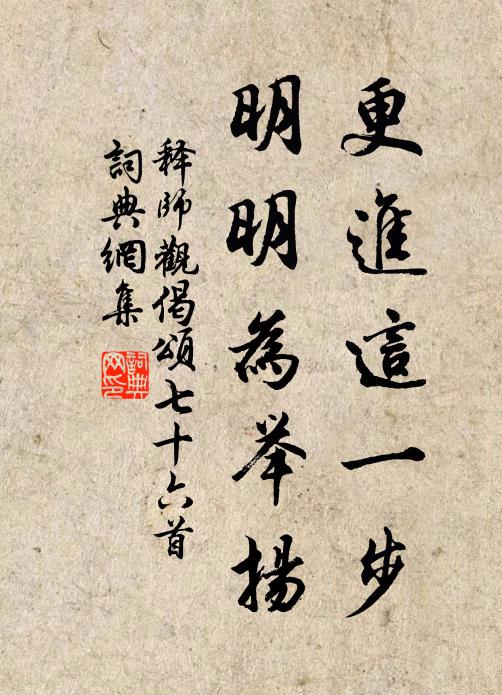 更進這一步
明明為举揚
释師觀偈頌七十六首
詞典網集
詞典网印